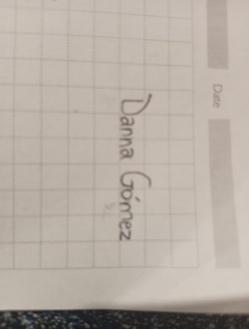 Date
Danna Gómez